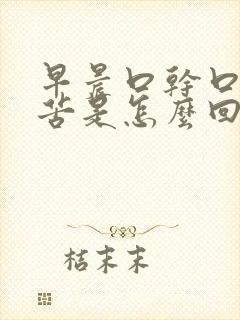 早晨口幹口
苦是怎麼回
桔末末